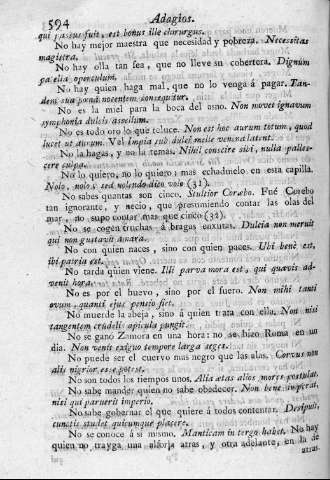 594 Adagios.
qui passus fuit, est bonus ille chirurgus.
No hay mejor maestra que necesidad y pobreza. Necessitas
magistra.
No hay olla tan fea, que no lleve su cobertera. Dignum
patella operculum.
No hay quien haga mal, que no lo venga á pagar. Tan-
dem sua pœna nocentem consequitur.
No es la miel para la boca del asno. Non movet ignavum
symphonia dulcis asellum.
No es todo oro lo que reluce. Non est hoc aurum totum, quod
lucet ut aurum. Vel Impia sub dulci melle venena latent.
No la hagas, y no la temas. Nihil conscire sibi, nulla palles-
cere culpa.
No lo quiero, no lo quiero; mas echadmelo en esta capilla.
Nolo, nolo; sed nolendo dico volo (31).
No sabes quantas son cinco. Stultior Corœbo. Fué Corebo
tan ignorante, y necio, que presumiendo contar las olas del
mar, no supo contar mas que cinco (32).
No se cogen truchas á bragas enxutas. Dulcia non meruit
qui non gustavit amara.
No con quien naces, sino con quien paces. Ubi benè est,
ibi patria est.
No tarda quien viene. Illi parva mora est, qui quavis ad-
venit hora.
No es por el huevo, sino por el fuero. Non mihi tanti
ovum, quanti ejus pensio fit.
No muerde la abeja, sino á quien trata con ella. Non nisi
tangentem crudeli apicula pungit.
No se ganó Zamora en una hora: no se hizo Roma en un
dia. Non venit exiguo tempore larga seges.
No puede ser el cuervo mas negro que las alas. Corvus non
alis nigrior esse potest.
No son todos los tiempos unos. Alia ætas alios mores postulat.
No sabe mandar quien no sabe obedecer. Non benè imperat,
nisi qui paruerit imperio.
No sabe gobernar el que quiere á todos contentar. Desipuit,
cunctis studet quicumque placere.
No se conoce á si mismo. Manticam in tergo habet. No hay
quien no trayga una alforja atras, y otra adelante, en la de
atras